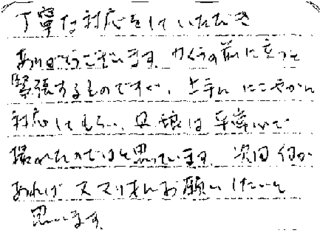 丁寧な対応をしていただき
ありがとうございます。カメラの前に立って
緊張するものですが、上手に にこやかに
対応してもらい、
撮れたのではと思っています。次回 何か
あれば スマリオさんお願いしたいと
思います